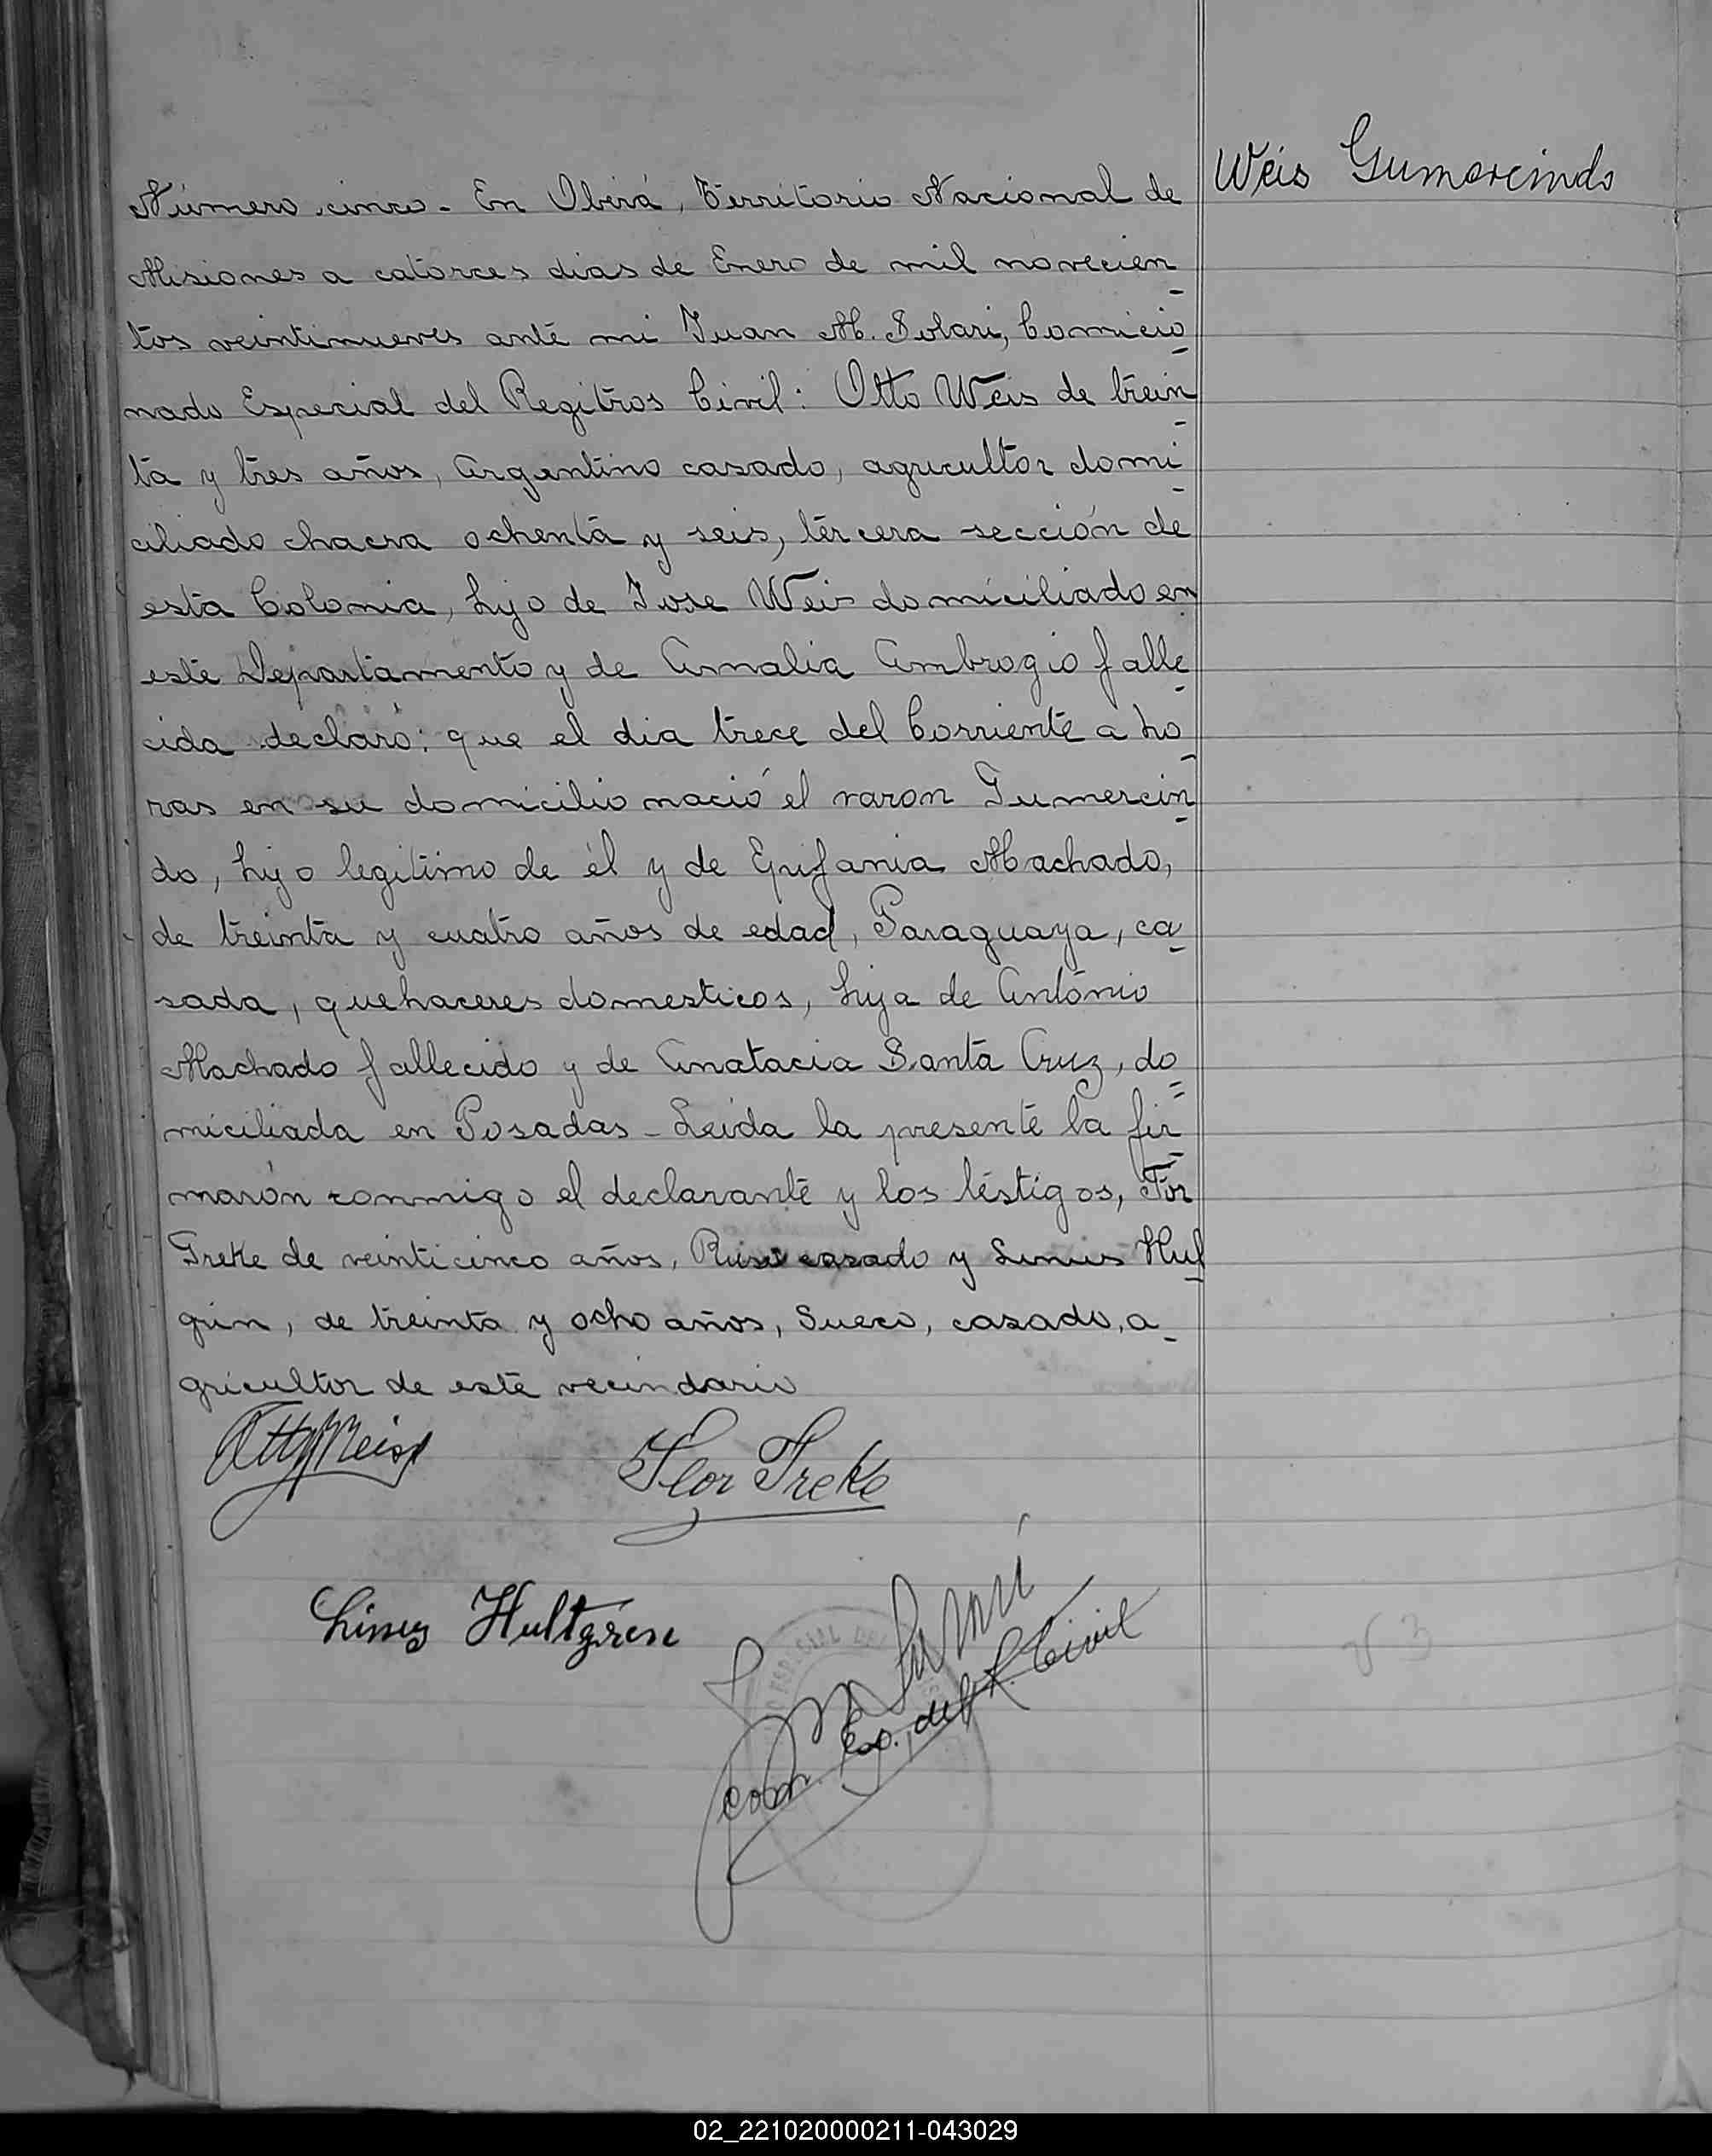 Weis Gumorcindo
Número cinco. En Oberá, Territorio Nacional de
Misiones a catorces dias de Enero de mil novecien
tos veintinueves ante mi Juan M. Solari, Comicio
nado Especial del Regitros Civil: Otto Weis de trein
ta y tres años, Argentino casado, agricultor domi
ciliado chacra ochenta y seis, tercera sección de
esta Colonia, hijo de Jose Weis domiciliado en
este Departamento y de Amalia Ambrogio falle
cida declaró: que el dia trece del Corriente a ho
ras en su domicilio nació el varon Gumercin
do, hijo legitimo de él y de Epifania Machado,
de treinta y cuatro años de edad, Paraguaya, ca
sada, quehaceres domesticos, hija de Antonio
Machado fallecido y de Anatacia Santa Cruz, do
miciliada en Posadas - Leida la presente la fir
marón conmigo el declarante y los testigos,
Treke de veinticinco años, casado y Linus Hul
grin, de treinta y ocho años, Sueco, casado, a
gricultor de este vecindario
Otto Weis
Treke
Hultgren
Com. Esp. del R. Civil
ESPECIAL DEL
02_221020000211-043029